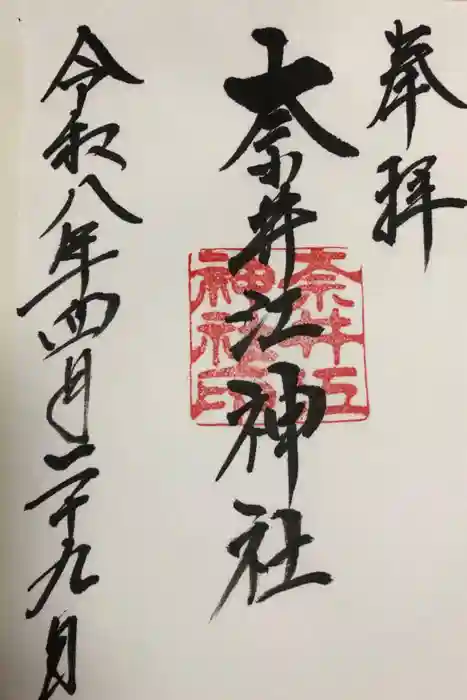 奉拝
奈井江神社
奈井江
神社印
令和八年四月二十九日